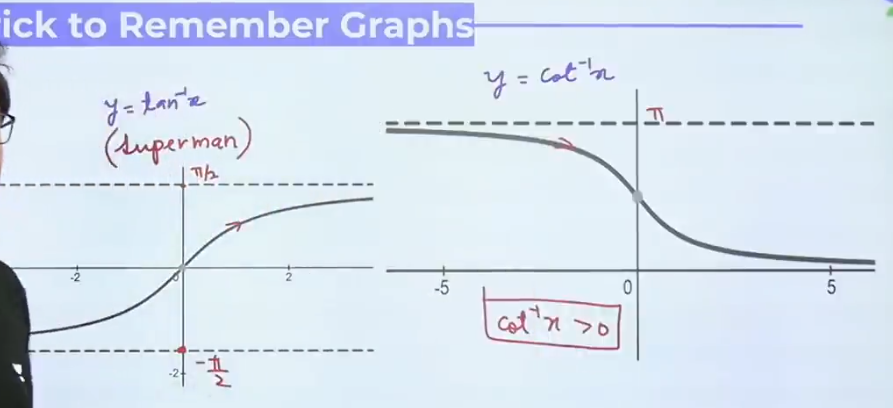 ick to Remember Graphs
y = tan⁻¹x
(Superman)
π/2
-2
0
2
-2
-π/2
y = cot⁻¹x
π
-5
0
5
cot⁻¹x >0